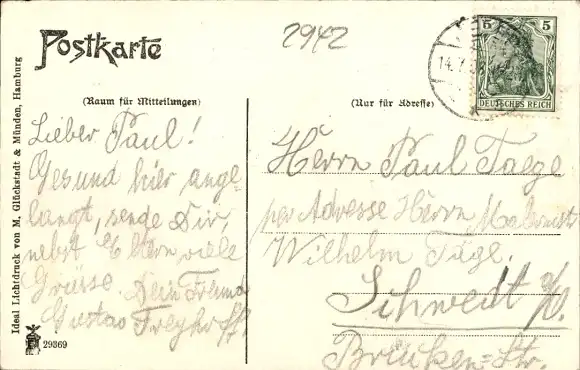 Postkarte
2942
5 5
DEUTSCHES REICH
14.7.
(Raum für Mitteilungen)
(Nur für Adresse)
Lieber Paul!
Gesund hier ange-
langt, sende Dir,
nebst Eltern viele
Grüsse. Dein Freund
Gustav
Herrn Paul Taege
per Adresse Herrn
Wilhelm Täge.
Schwedt a/O.
Brücken-Str.
Ideal Lichtdruck von M. Glückstadt & Münden, Hamburg
29369